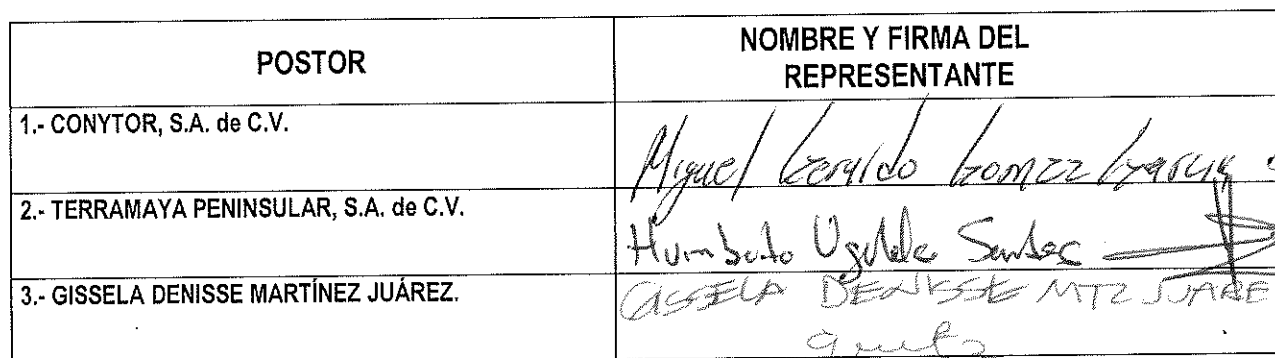 POSTOR
NOMBRE Y FIRMA DEL
REPRESENTANTE
1.- CONYTOR, S.A. de C.V.
Miguel Geraldo Gomez Garcia
2.- TERRAMAYA PENINSULAR, S.A. de C.V.
Humberto Ugalde
3.- GISSELA DENISSE MARTÍNEZ JUÁREZ.
GISSELA DENISSE MTZ JUARE